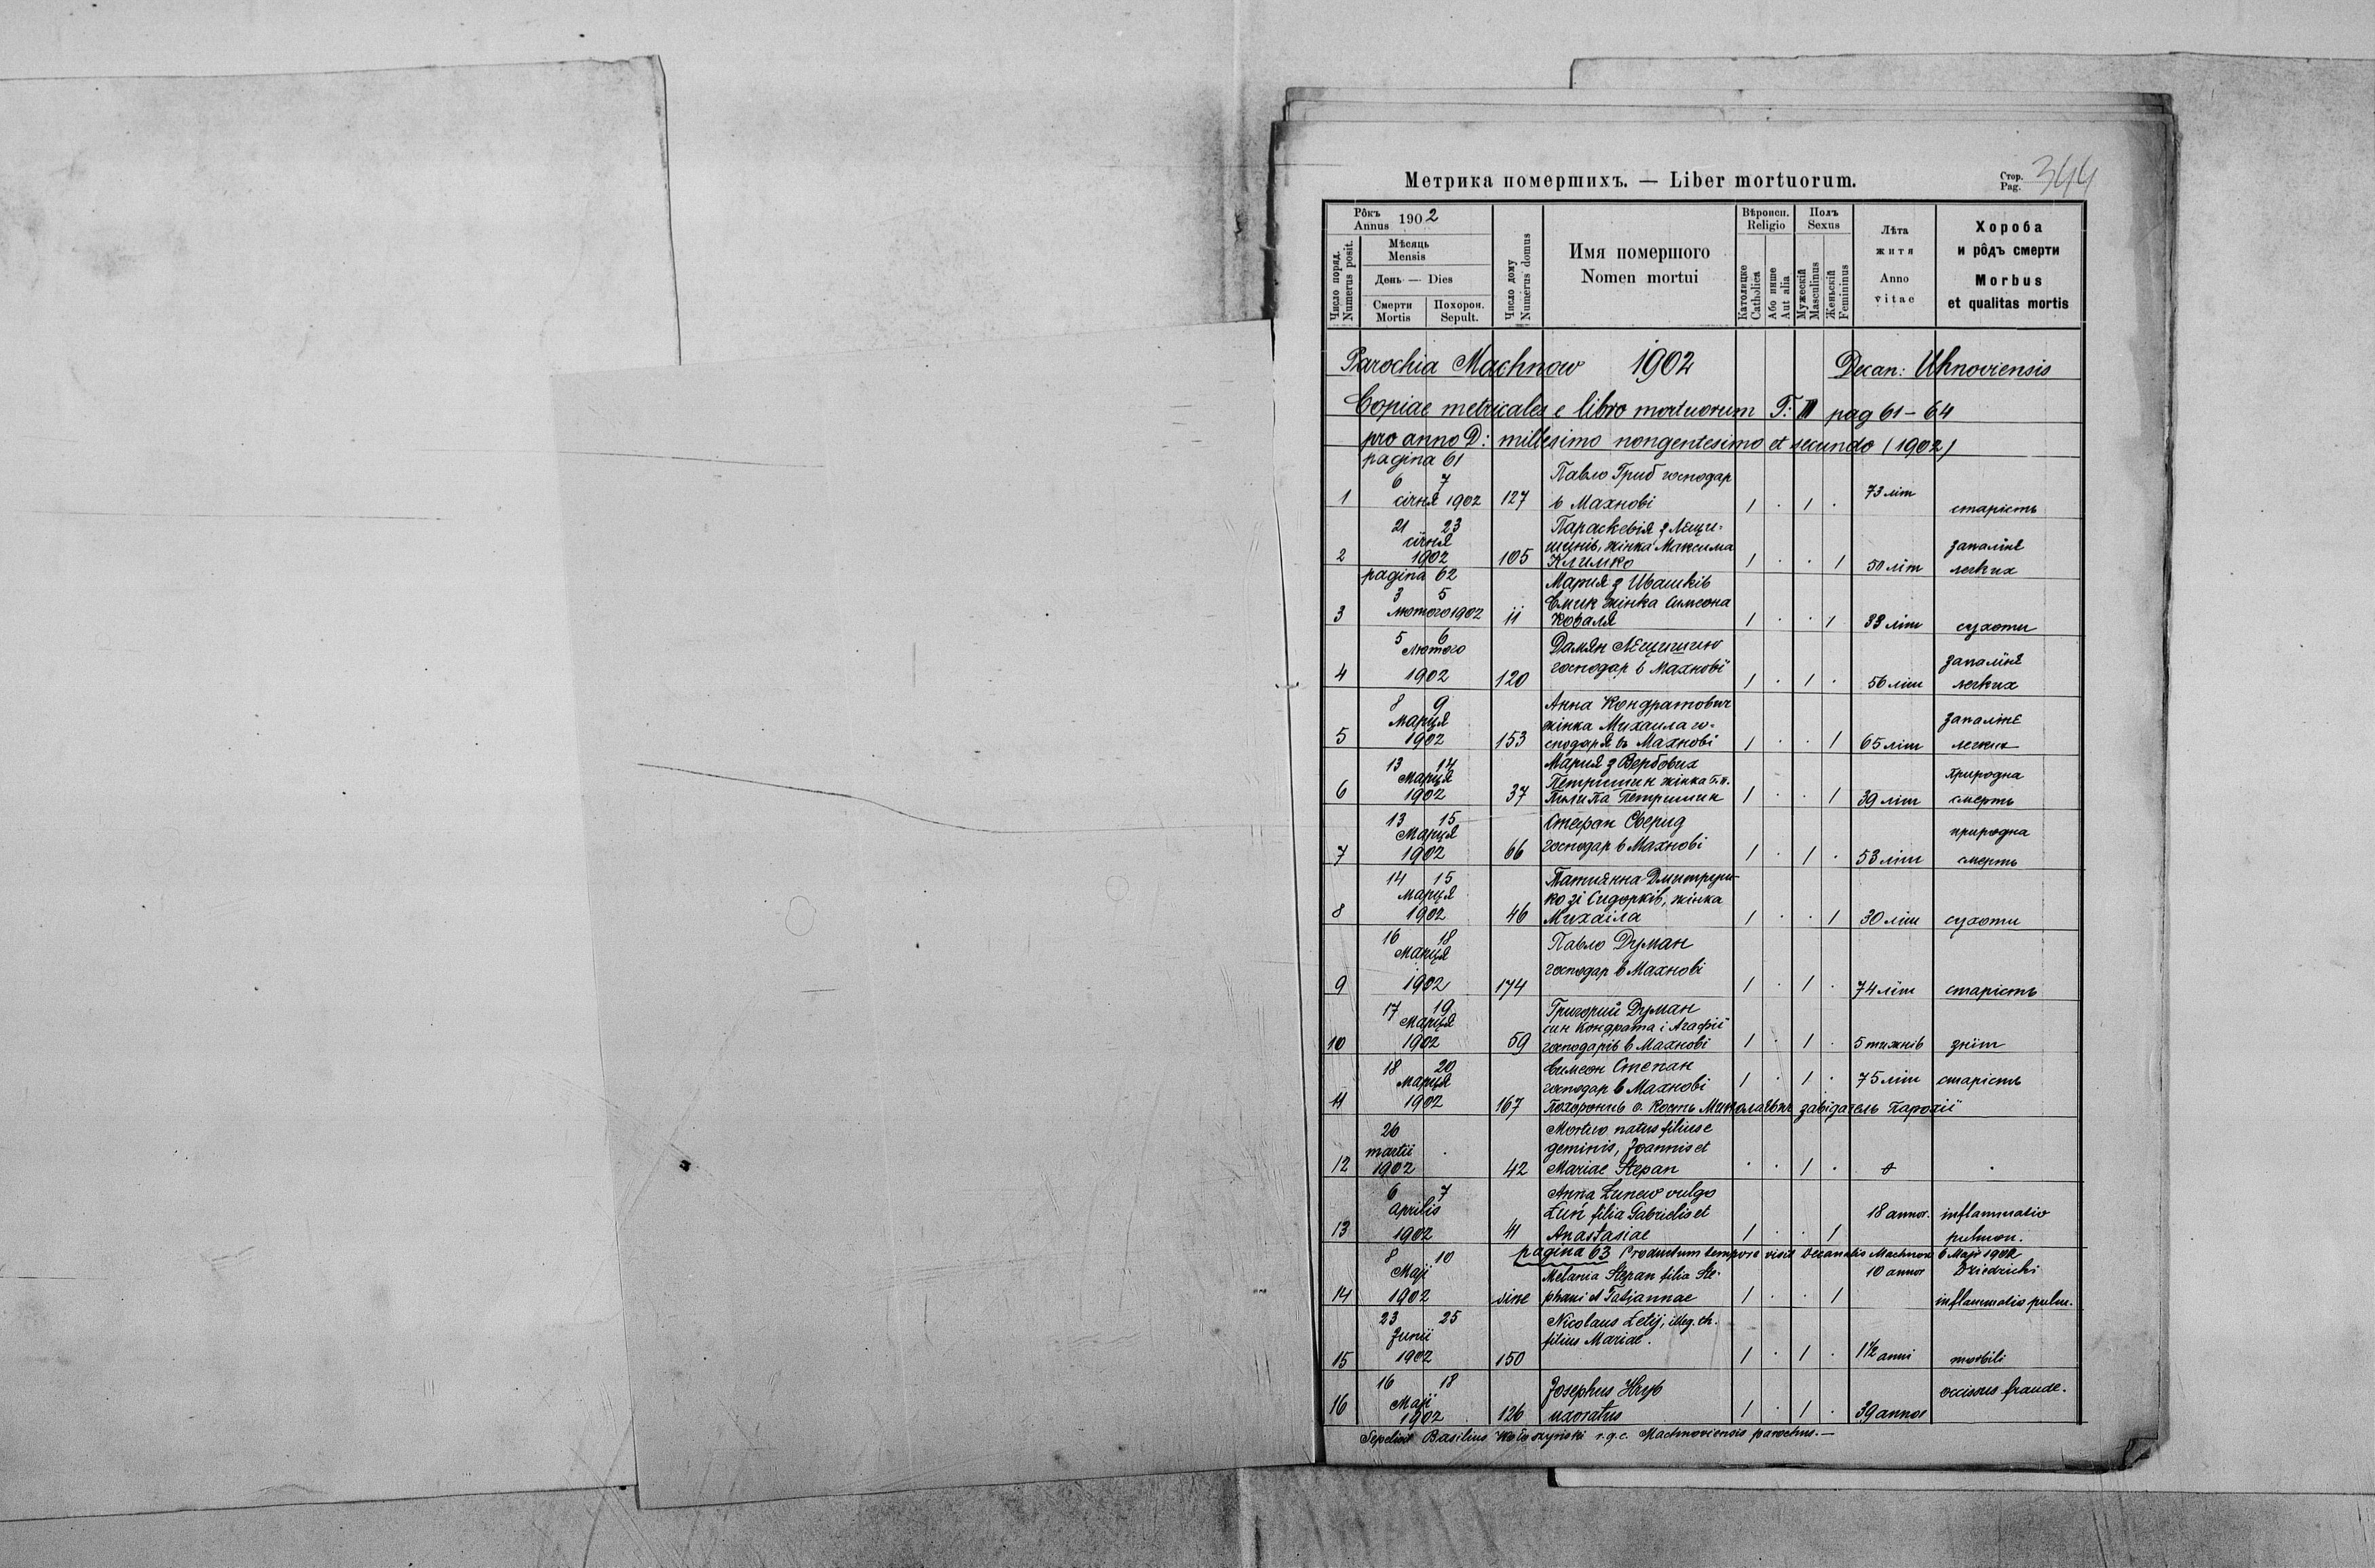 Метрика помершихъ. — Liber mortuorum.
Стор. Pag. 344
Рôкъ Annus 1902
Число поряд. Numerus posit.
Мѣсяць Mensis
День — Dies
Смерти Mortis
Похорон. Sepult.
Число дому Numerus domus
Имя помершого
Nomen mortui
Вѣроисп. Religio
Католицке Catholica
Або инше Aut alia
Полъ Sexus
Мужескій Masculinus
Женьскій Femininus
Лѣта житя
Anno vitae
Хороба и рôдъ смерти
Morbus et qualitas mortis
Parochia Machnow 1902 Decan: Uhnoviensis
Copiae metricales e libro mortuorum T: III pag 61-64
pro anno D: millesimo nongentesimo et secundo (1902)
pagina 61
6 7 Павло Гриб господар
1 січня 1902 127 в Махнові 1 . 1 . 73 літ старість
21 23 Параскевія з Лещи-
січня шинів, жінка Максима запалінє
2 1902 105 Климко 1 . . 1 50 літ легких
pagina 62 Мария з Ивашків
3 5 Смик жінка Симеона
3 лютого 1902 11 Коваля 1 . . 1 33 літ сухоти
5 6 Дамян Лещишин
лютого господар в Махнові запалінє
4 1902 120 1 . 1 . 56 літ легких
8 9 Анна Кондратович
марця жінка Михаила го- запалінє
5 1902 153 сподаря в Махнові 1 . . 1 65 літ легких
13 14 Мария з Вербових
марця Петришин жінка б.п. природна
6 1902 37 Петришин 1 . . 1 39 літ смерть
13 15 Стефан Сверид
марця господар в Махнові природна
7 1902 66 1 . 1 . 53 літ смерть
14 15 Татиянна Дмитрун-
марця ко зі Сидорків, жінка
8 1902 46 Михаіла 1 . . 1 30 літ сухоти
16 18 Павло Думан
марця господар в Махнові
9 1902 174 1 . 1 . 74 літ старість
17 19 Григорий Думан
марця син Кондрата і Агафії
10 1902 59 господарів в Махнові 1 . 1 . 5 тижнів
18 20 Симеон Степан
марця господар в Махнові 1 . 1 . 75 літ старість
11 1902 167 Похоронив о. Кость Миколаєвич завідатель парохії
26 Mortuo natus filius e
martii . geminis, Joannis et
12 1902 42 Mariae Stepan . . 1 . .
6 7 Anna Lunew vulgo
Aprilis Łuń filia Gabrielis et 18 annor. inflammatio
13 1902 41 Anastasiae 1 . . 1 pulmon.
pagina 63 Productum tempore visit decanalis Machnow 6 Maji 1902
8 10 Dziedzicki
Maji Melania Stepan filia Ste- 10 annor
14 1902 sine phani et Tatjannae 1 . . 1 inflammatio pulm.
23 25 Nicolaus Letij, illeg. th.
Junii filius Mariae.
15 1902 150 1 . 1 . 1½ anni morbili
16 18 Josephus Hryb occissus fraude.
16 Maji 1902 126 uxoratus 1 . 1 . 39 annor
Sepelivit Basilius r.g.c. Machnoviensis parochus.—